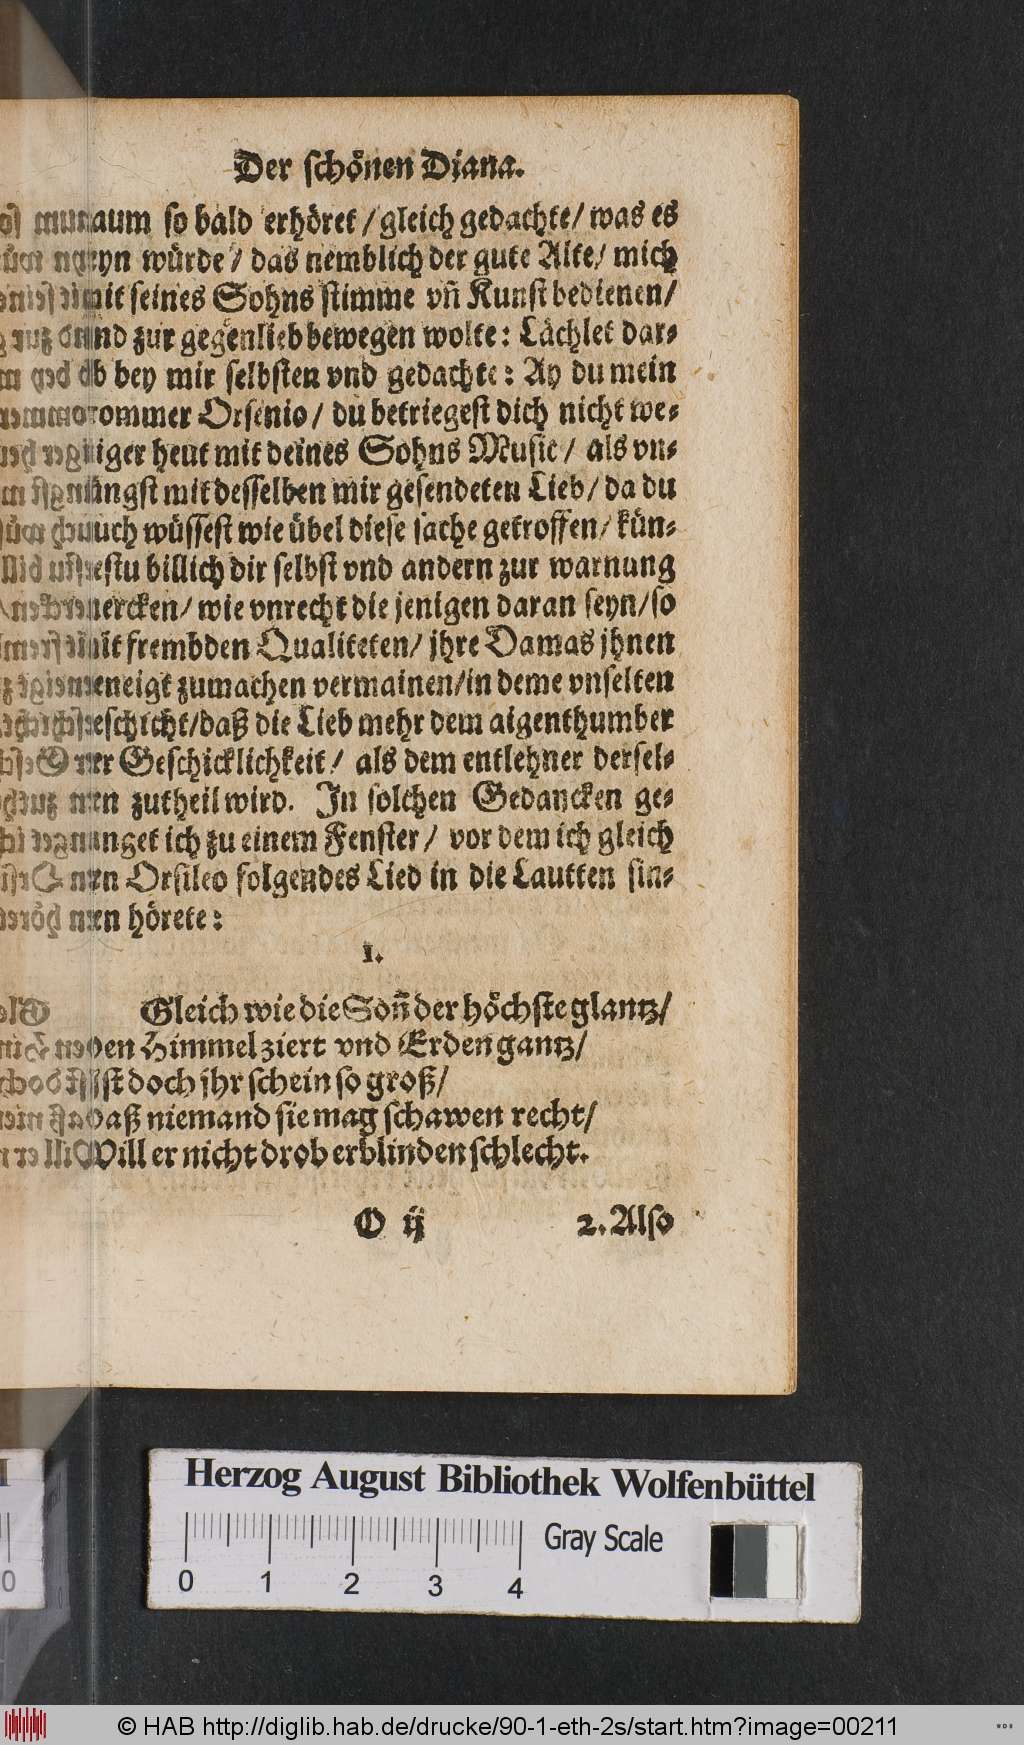 Der schönen Diana.
kaum so bald erhöret / gleich gedachte / was es
seyn würde / das nemblich der gute Alte / mich
mit seines Sohns stimme vñ Kunst bedienen /
vnd zur gegenlieb bewegen wolte : Lächlet dar-
ob bey mir selbsten vnd gedachte : Ay du mein
frommer Orsenio / du betriegest dich nicht we-
niger heut mit deines Sohns Music / als vn-
längst mit desselben mir gesendeten Lieb / da du
auch wüssest wie übel diese sache getroffen / kün-
testu billich dir selbst vnd andern zur warnung
mercken / wie vnrecht die jenigen daran seyn / so
mit frembden Qualiteten / jhre Damas jhnen
geneigt zumachen vermainen / in deme vnselten
geschicht / daß die Lieb mehr dem aigenthumber
der Geschicklichkeit / als dem entlehner dersel-
ben zutheil wird. In solchen Gedancken ge-
langet ich zu einem Fenster / vor dem ich gleich
den Orsileo folgendes Lied in die Lautten sin-
gen hörete :
1.
Gleich wie die Soñ der höchste glantz /
Den Himmel ziert vnd Erden gantz /
Ist doch jhr schein so groß /
Daß niemand sie mag schawen recht /
Will er nicht drob erblinden schlecht.
O ij 2. Also
Herzog August Bibliothek Wolfenbüttel
Gray Scale
0 1 2 3 4
0
© HAB http://diglib.hab.de/drucke/90-1-eth-2s/start.htm?image=00211